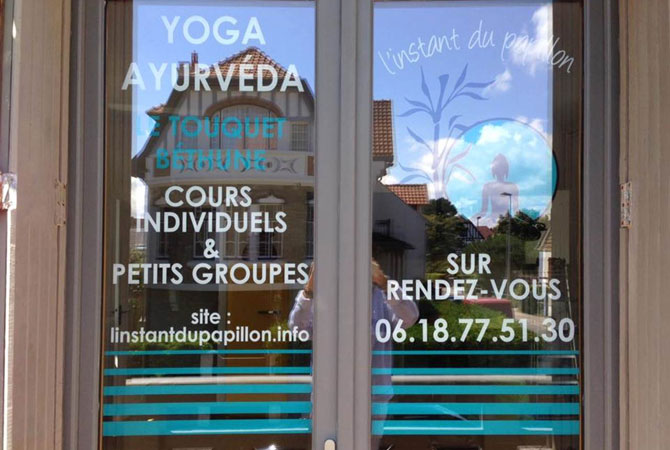 YOGA
AYURVÉDA
LE TOUQUET
BÉTHUNE
COURS
INDIVIDUELS
&
PETITS GROUPES
site :
linstantdupapillon.info
l'instant du papillon
SUR
RENDEZ-VOUS
06.18.77.51.30